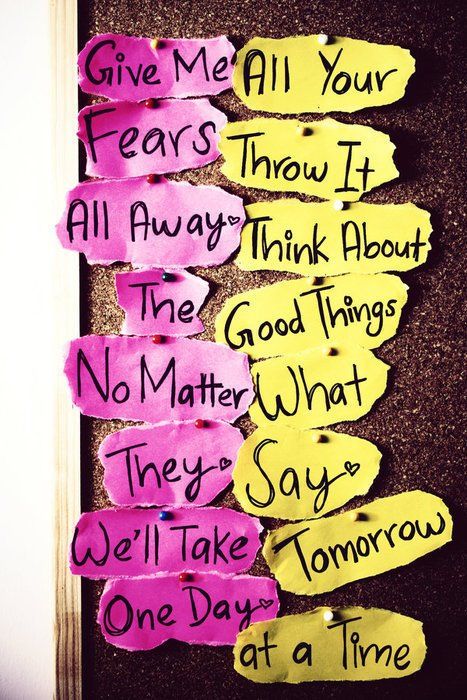 Give Me All Your
Fears Throw It
All Away Think About
The Good Things
No Matter What
They Say
We'll Take Tomorrow
One Day at a Time